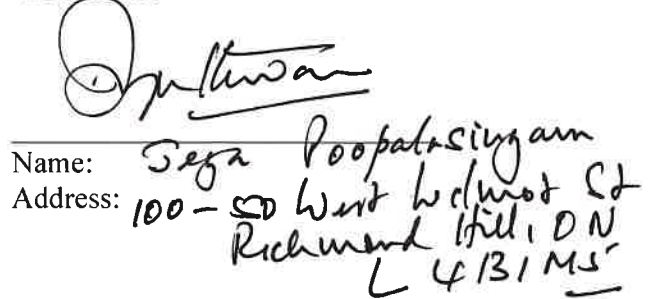 Name: Jega Poopalasingam
Address: 100-50 West Wilmot St
Richmond Hill, ON
L4B1M5